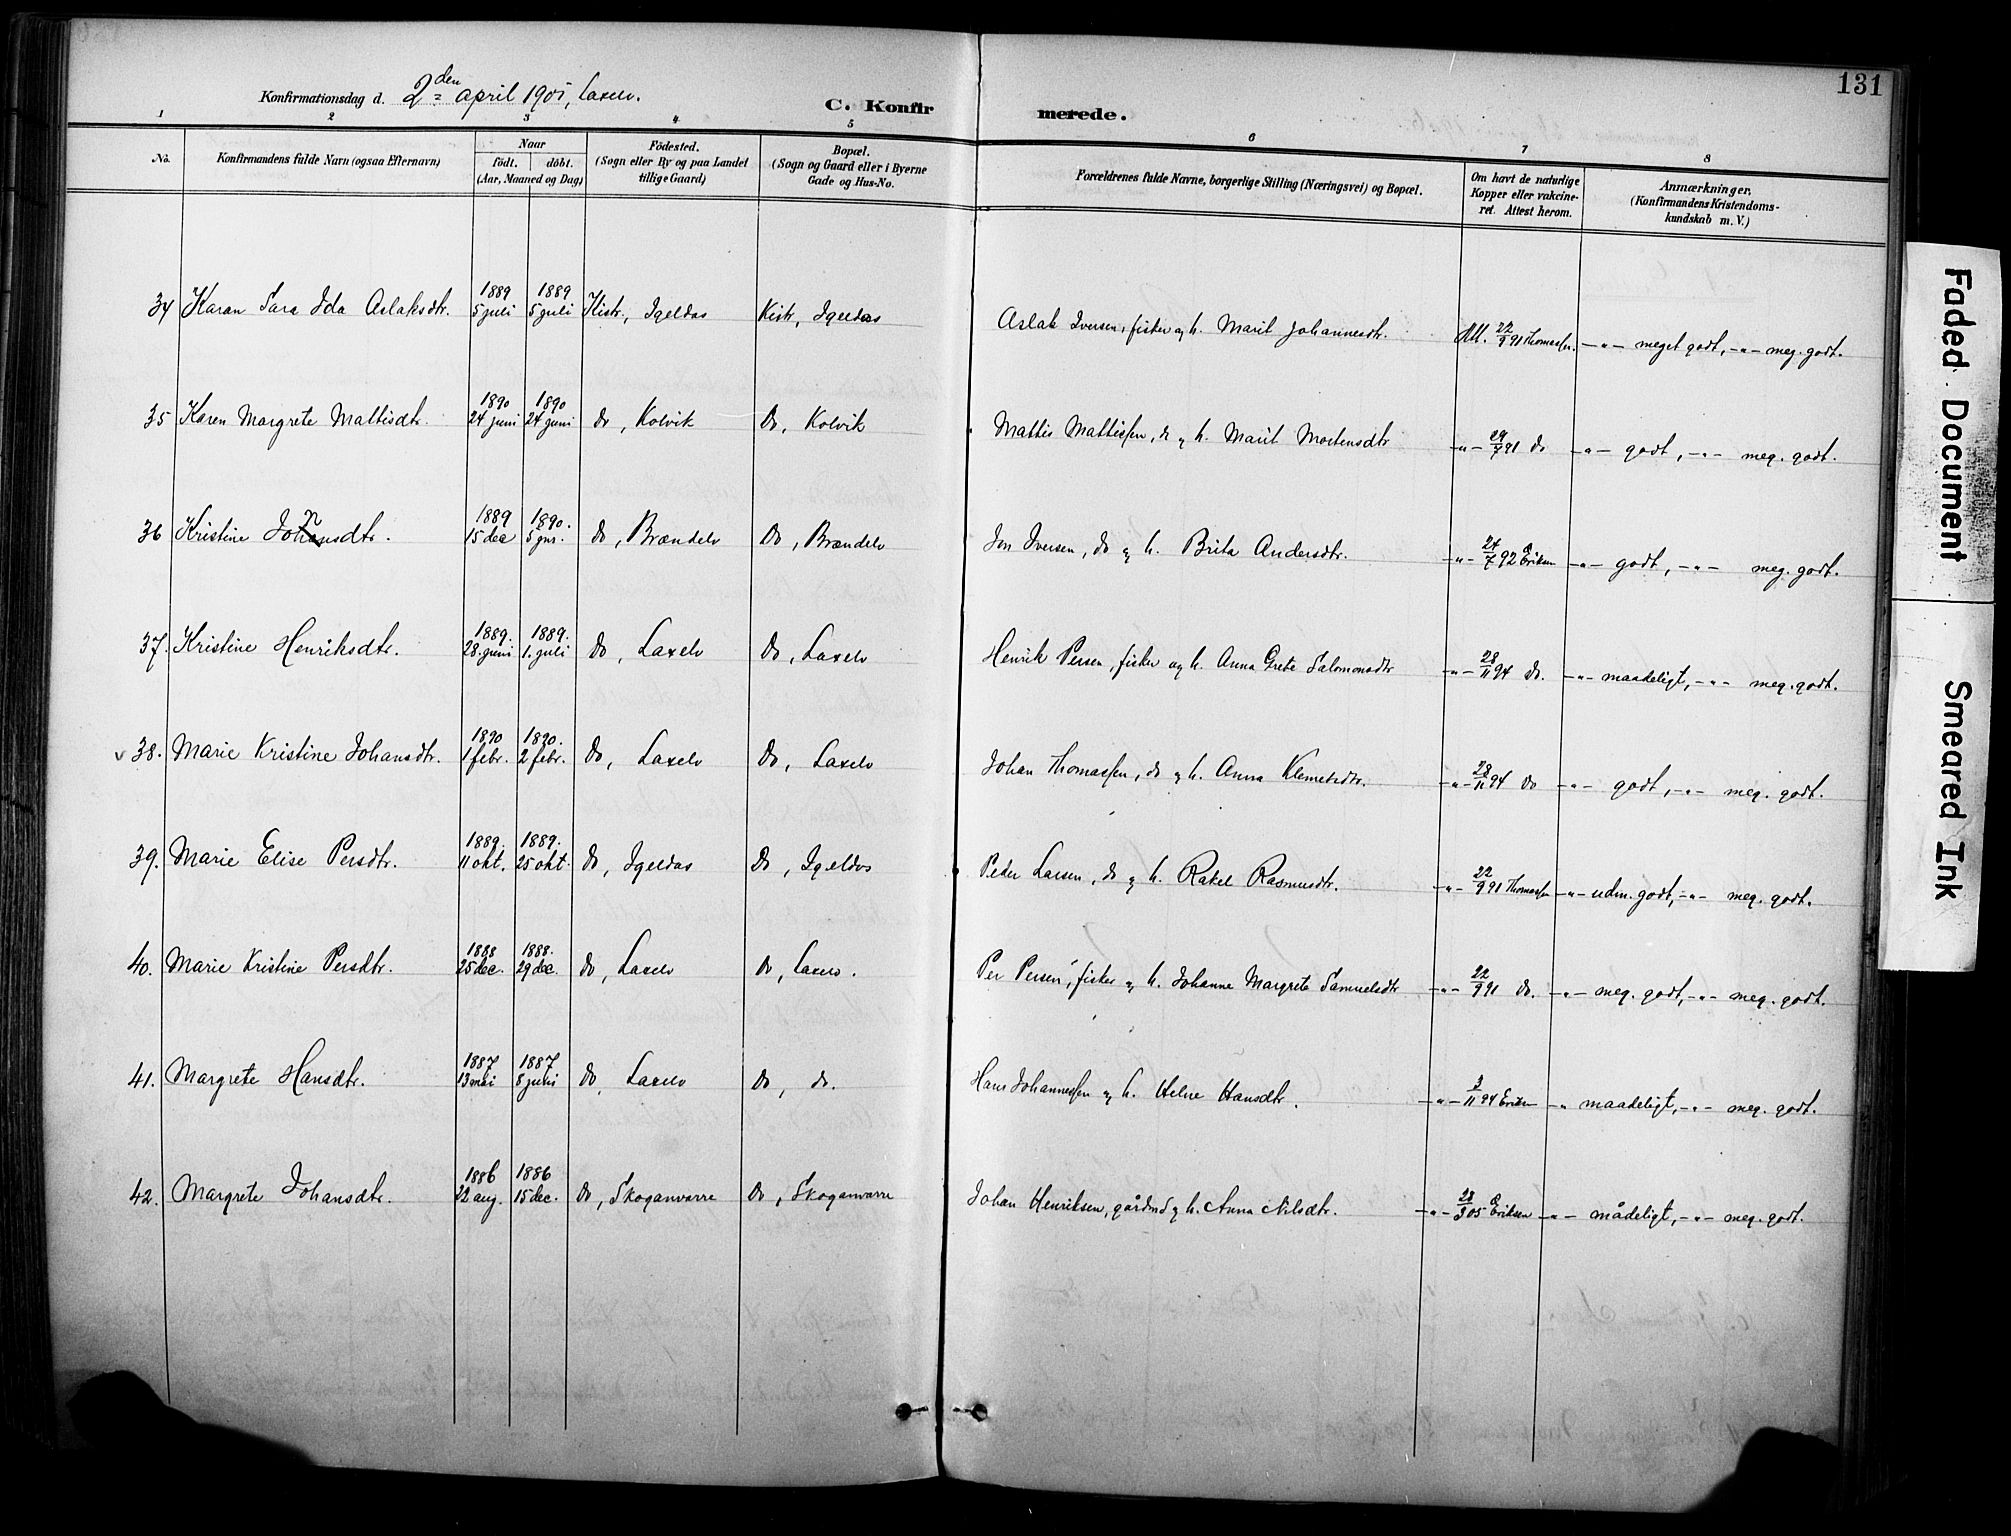 131
Konfirmationsdag d. 2den april 1905, Laxelv.
C. Konfirmerede.
1 2 3 4 5 6 7 8
No. Konfirmandens fulde Navn (ogsaa Efternavn) Naar født. døbt. (Aar, Maaned og Dag) Fødested. (Sogn eller By og paa Landet tillige Gaard) Bopæl. (Sogn og Gaard eller i Byerne Gade og Hus-No. Forældrenes fulde Navne, borgerlige Stilling (Næringsvei) og Bopæl. Om havt de naturlige Kopper eller vakcineret. Attest herom. Anmærkninger. (Konfirmandens Kristendomskundskab m. V.)
34 Karan Sara Ida Aslaksdtr. 1889 5 juli 1889 5 juli Kistr., Igeldas Kistr, Igeldas Aslak Iversen, fisker og h. Marit Johannesdtr. Att. 22/9 91 Thomassen. -"- meget godt, -"- meg. godt.
35 Karen Margrete Mattisdtr. 1890 24 juni 1890 24 juni do, Kolvik Do, Kolvik Mattis Mattissen, do og h. Marit Mortensdtr -"- 29/7 91 do -"- godt, -"- meg. godt.
36 Kristine Johansdtr. n 1889 15 dec 1890. 5 jnr. do, Brændelv Do, Brændelv Jon Iversen, do og h. Brita Andersdtr. -"- 24/7 92 Eriksen -"- godt, -"- meg. godt.
37. Kristine Henriksdtr. 1889. 28. juni 1889. 1. juli Do, Laxelv Do, Laxelv Henrik Persen, fisker og h. Anna Grete Salomonsdtr -"- 28/11 94 do. -"- maadeligt, -"- meg. godt.
v 38. Marie Kristine Johansdtr. 1890 1 febr. 1890. 2 febr. Do, Laxelv Do, Laxelv Johan Thomassen, do og h. Anna Klemetsdtr. -"- 28/11 94 do -"- godt, -"- meg. godt.
39. Marie Elise Persdtr. 1889. 11 okt. 1889. 25 okt. Do, Igeldas Do, Igeldas Peder Larsen, do og h. Rakel Rasmusdtr. -"- 22/9 91 Thomassen -"- udm. godt, -"- meg. godt.
40. Marie Kristine Persdtr. 1888 25 dec. 1888. 29 dec. do, Laxelv Do, Laxelv. Per Persen, fisker og h. Johanne Margrete Samuelsdtr -"- 22/9 91 do. -"- meg. godt, -"- meg. godt.
41. Margrete Hansdtr. 1887 13 mai 1887 8 juli do, Laxelv Do, do. Hans Johannessen og h. Helene Hansdtr. -"- 3/11 94 Eriksen -" maadeligt, -"- meg. godt.
42. Margrete Johansdtr. 1886 22 aug. 1886 15 dec. Do, Skoganvarre Do, Skoganvarre Johan Henriksen, gårdmd og h. Anna Nilsdtr. -"- 28/3 05 Eriksen -"- mådeligt, -"- meg. godt.
Faded Document
Smeared Ink